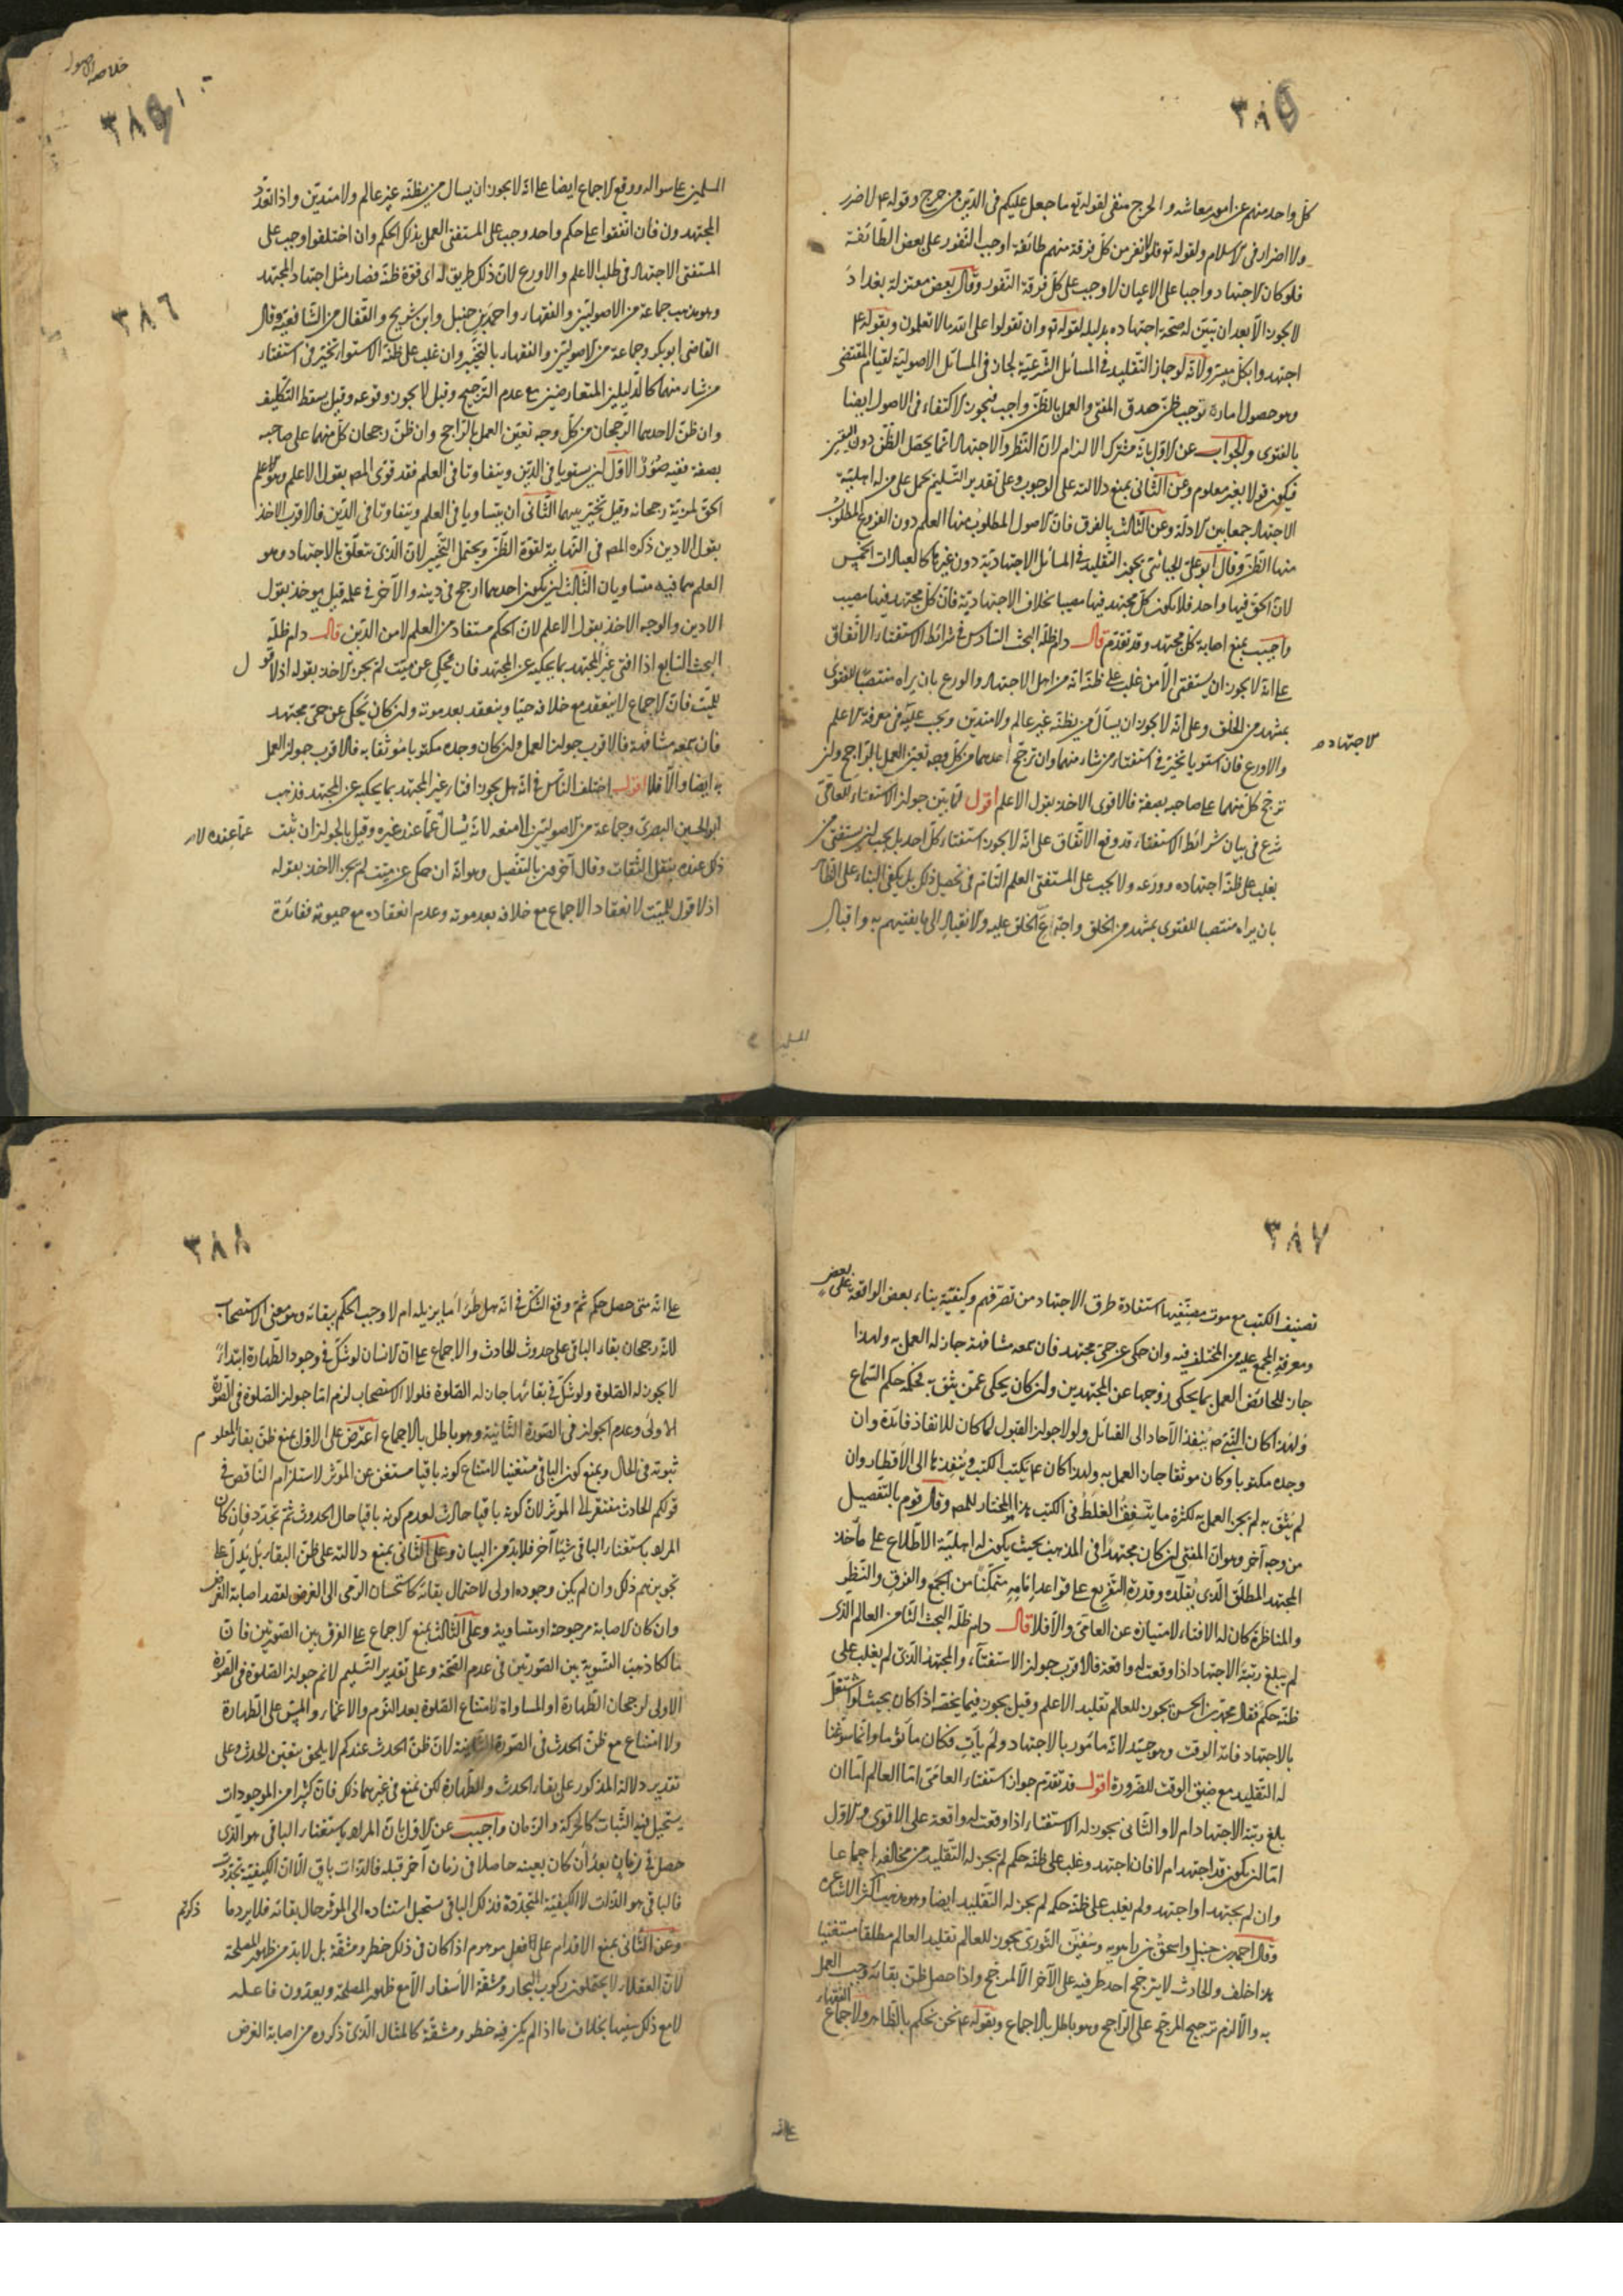 ٣٨٥
كل واحد منهم عن امور معاشه والحرج منفى لقوله تع ما جعل عليكم فى الدين من حرج وقوله ع لا ضرر
ولا اضرار فى الاسلام ولقوله تع فلولا نفر من كل فرقة منهم طائفة اوجب النفور على بعض الطائفة
فلو كان الاجتهاد واجبا على الاعيان لاوجب على كل فرقة النفور وقال بعض معتزلة بغداد
لا يجوز الا بعد ان تبين له صحة اجتهاده بدليله لقوله تع وان تقولوا على الله ما لا تعلمون وبقوله ع
اجتهدوا فكل ميسر ولانه لو جاز التقليد فى المسائل الشرعية لجاز فى المسائل الاصولية لقيام المقتضى
وهو حصول امارة توجب ظن صدق المفتى والعمل بالظن واجب فيجوز الاكتفاء فى الاصول ايضا
بالفتوى والجواب عن الاول بانه مشترك الالزام لان النظر والاجتهاد انما يحصل الظن دون اليقين
فيكون قولا بغير معلوم وعن الثانى بمنع دلالته على الوجوب وعلى تقدير التسليم يحمل على من له اهلية
الاجتهاد جمعا بين الادلة وعن الثالث بالفرق فان الاصول المطلوب منها العلم دون الفروع المطلوب
منها الظن وقال ابو على الجبائى يجوز التقليد فى المسائل الاجتهادية دون غيرها كالعبادات الخمس
لان الحق فيها واحد فلا يكون كل مجتهد فيها مصيبا بخلاف الاجتهادية فان كل مجتهد فيها مصيب
واجيب بمنع اصابة كل مجتهد وقد تقدم قال دام ظله البحث السادس فى شرائط الاستفتاء الاتفاق
على انه لا يجوز ان يستفتى الا من غلب على ظنه انه من اهل الاجتهاد والورع بان يراه منتصبا للفتوى
بمشهد من الخلق وعلى انه لا يجوز ان يسأل من يظنه غير عالم ولا متدين ويجب عليه فى معرفة الاعلم
الاجتهاد
والاورع فان استويا تخير فى استفتاء من شاء منهما وان ترجح احدهما من كل وجه تعين العمل بالراجح وان
ترجح كل منهما على صاحبه بصفة فالاقوى الاخذ بقول الاعلم اقول لما بين جواز الاستفتاء للعامى
شرع فى بيان شرائط الاستفتاء وقد وقع الاتفاق على انه لا يجوز استفتاء كل احد بل يجب ان يستفتى من
يغلب على ظنه اجتهاده وورعه ولا يجب على المستفتى العلم التام فى تحصيل ذلك بل يكفى البناء على الظاهر
بان يراه منتصبا للفتوى بمشهد من الخلق واجتماع الخلق عليه والانقياد الى ما يفتيهم به واقبال
المسلمين
خلاصة الاصول
٣٨٦
المسلمين على سواله ووقع الاجماع ايضا على انه لا يجوز ان يسال من يظنه غير عالم ولا متدين واذا تعدد
المجتهدون فان اتفقوا على حكم واحد وجب على المستفتى العمل بذلك الحكم وان اختلفوا وجب على
المستفتى الاجتهاد فى طلب الاعلم والاورع لان ذلك طريق له الى قوة ظنه فصار مثل اجتهاد المجتهد
وهو مذهب جماعة من الاصوليين والفقهاء واحمد بن حنبل وابن شريح والقفال من الشافعية وقال
القاضى ابو بكر وجماعة من الاصوليين والفقهاء بالتخيير وان غلب على ظنه الاستواء تخير فى استفتاء
من شاء منهما كالدليلين المتعارضين مع عدم الترجيح وقيل لا يجوز وقوعه وقيل يسقط التكليف
وان ظن لاحدهما الرجحان من كل وجه تعين العمل بالراجح وان ظن رجحان كل منهما على صاحبه
بصفة ففيه صور الاول ان يستويا فى الدين ويتفاوتا فى العلم فقد قوى المص بقول الاعلم وهو
الحق لمزية رجحانه وقيل تخير بينهما الثانى ان يتساويا فى العلم ويتفاوتا فى الدين فالاقرب الاخذ
بقول الادين ذكره المص فى النهاية لقوة الظن ويحتمل التخيير لان الذى يتعلق بالاجتهاد وهو
العلم هما فيه متساويان الثالث ان يكون احدهما ارجح فى دينه والآخر فى علمه قيل يوخذ بقول
الادين والوجه الاخذ بقول الاعلم لان الحكم مستفاد من العلم لا من الدين قال دام ظله
البحث السابع اذا افتى غير المجتهد بما يحكيه عن المجتهد فان حكى عن ميت لم يجز الاخذ بقوله اذ لا قول
للميت فان الاجماع لا ينعقد مع خلافه حيا وينعقد بعد موته وان كان يحكى عن حى مجتهد
فان سمعه مشافهة فالاقرب جواز العمل وان كان وجده مكتوبا موثقا به فالاقرب جواز العمل
به ايضا والا فلا اقول اختلف الناس فى انه هل يجوز افتاء غير المجتهد بما يحكيه عن المجتهد فذهب
ابو الحسين البصرى وجماعة من الاصوليين الى منعه لانه يسال عما عند غيره وقيل بالجواز ان ثبت عما عنده لا
ذلك عنده بنقل الثقات وقال آخرون بالتفصيل وهو انه ان حكى عن ميت لم يجز الاخذ بقوله
اذ لا قول للميت لانعقاد الاجماع مع خلافه بعد موته وعدم انعقاده مع حيوته ففائدة
٣٨٧
تصنيف الكتب مع موت مصنفيها استفادة طرق الاجتهاد من تصرفهم وكيفية بناء بعض الواقعة على بعض
ومعرفة المجمع عليه من المختلف فيه وان حكى عن حى مجتهد فان سمعه مشافهة جاز له العمل به ولهذا
جاز للحائض العمل بما يحكى زوجها عن المجتهدين وان كان يحكى عمن يثق به فحكمه حكم السماع
ولهذا كان النبى ص ينفذ الآحاد الى القبائل ولولا جواز القبول لما كان للانفاذ فائدة وان
وجده مكتوبا وكان موثقا جاز العمل به ولهذا كان ع يكتب الكتب وينفذها الى الاقطار وان
لم يثق به لم يجز العمل به لكثرة ما يتفق الغلط فى الكتب هذا هو المختار للمص وقال قوم بالتفصيل
من وجه آخر وهو ان المفتى ان كان مجتهدا فى المذهب بحيث يكون له اهلية الاطلاع على مأخذ
المجتهد المطلق الذى يقلده وقدرة التفريع على قواعد امامه متمكنا من الجمع والفرق والنظر
والمناظرة كان له الافتاء لامتيازه عن العامى والا فلا قال دام ظله البحث الثامن العالم الذى
لم يبلغ رتبة الاجتهاد اذا وقعت له واقعة فالاقرب جواز الاستفتاء والمجتهد الذى لم يغلب على
ظنه حكم فقال محمد بن الحسن يجوز للعالم تقليد الاعلم وقيل يجوز فيما يخصه اذا كان بحيث لو اشتغل
بالاجتهاد فاته الوقت وهو جيد لانه مأمور بالاجتهاد ولم يأت فكان مأثوما وانما سوغنا
له التقليد مع ضيق الوقت للضرورة اقول قد تقدم جواز استفتاء العامى اما العالم اما ان
بلغ رتبة الاجتهاد ام لا والثانى يجوز له الاستفتاء اذا وقعت له واقعة على الاقوى والاول
اما ان يكون قد اجتهد ام لا فان اجتهد وغلب على ظنه حكم لم يجز له التقليد من مخالفه اجماعا
وان لم يجتهد او اجتهد ولم يغلب على ظنه حكم لم يجز له التقليد ايضا وهو مذهب اكثر الاشاعرة
وقال احمد بن حنبل واسحق بن راهويه وسفين الثورى يجوز للعالم تقليد العالم مطلقا مستفتيا
هذا خلف والحادث لا يترجح احد طرفيه على الآخر الا لمرجح واذا حصل ظن بقائه وجب العمل
به والا لزم ترجيح المرجوح على الراجح وهو باطل بالاجماع وبقوله ع نحن نحكم بالظاهر ولاجماع الفقهاء
على انه
٣٨٨
على انه متى حصل حكم ثم وقع الشك فى انه هل طرأ ما يزيله ام لا وجب الحكم ببقائه وهو معنى الاستصحاب
لانه رجحان بقاء الباقى على حدوث الحادث والاجماع على ان الانسان لو شك فى وجود الطهارة ابتداء
لا يجوز له الصلوة ولو شك فى بقائها جاز له الصلوة فلولا الاستصحاب لزم اما جواز الصلوة فى الصورة
الاولى وعدم الجواز فى الصورة الثانية وهو باطل بالاجماع اعترض على الاول بمنع ظن بقاء المعلوم
ثبوته فى الحال وبمنع كون الباقى مستغنيا لامتناع كونه باقيا مستغن عن المؤثر لاستلزام التناقض فى
قولكم للحادث مفتقر الى المؤثر لان كونه باقيا حادث لعدم كونه باقيا حال الحدوث ثم تجدد فان كان
المراد باستغناء الباقى شيئا آخر فلا بد من البيان وعلى الثانى بمنع دلالته على ظن البقاء بل يدل على
تجويزهم ذلك وان لم يكن وجوده اولى لاحتمال بقائه كاستحسان الرمى الى الغرض لقصد اصابة الغرض
وان كان الاصابة مرجوحة او متساوية وعلى الثالث بمنع الاجماع على الفرق بين الصورتين فان
مالكا ذهب التسوية بين الصورتين فى عدم الصحة وعلى تقدير التسليم لا نم جواز الصلوة فى الصورة
الاولى لرجحان الطهارة او المساواة لامتناع الصلوة بعد النوم والاغماء والمس على الطهارة
ولا امتناع مع ظن الحدث فى الصورة الثانية لان ظن الحدث عندكم لا يلحق بتعين الحدث وعلى
تقدير دلالة المذكور على بقاء الحدث والطهارة لكن نمنع فى غيرهما ذلك فان كثيرا من الموجودات
يستحيل فيه الثبات كالحركة والزمان واجيب عن الاول بان المراد باستغناء الباقى هو الذى
حصل فى زمان بعد أن كان بعينه حاصلا فى زمان آخر قبله فالذات باق الا ان الكيفية تجددت
فالباقى هو الذات لا الكيفية المتجددة فذلك الباقى يستحيل استناده الى المؤثر حال بقائه فلا يرد ما ذكرتم
وعن الثانى بمنع الاقدام على فعل موهوم اذا كان فى ذلك خطر ومشقة بل لا بد من ظهور المصلحة
لان العقلاء لا يحتملون ركوب البحار ومشقة الأسفار الا مع ظهور المصلحة ويعدون فاعله
لا مع ذلك سفيها بخلاف ما اذا لم يكن فيه خطر ومشقة كالمثال الذى ذكروه من اصابة الغرض